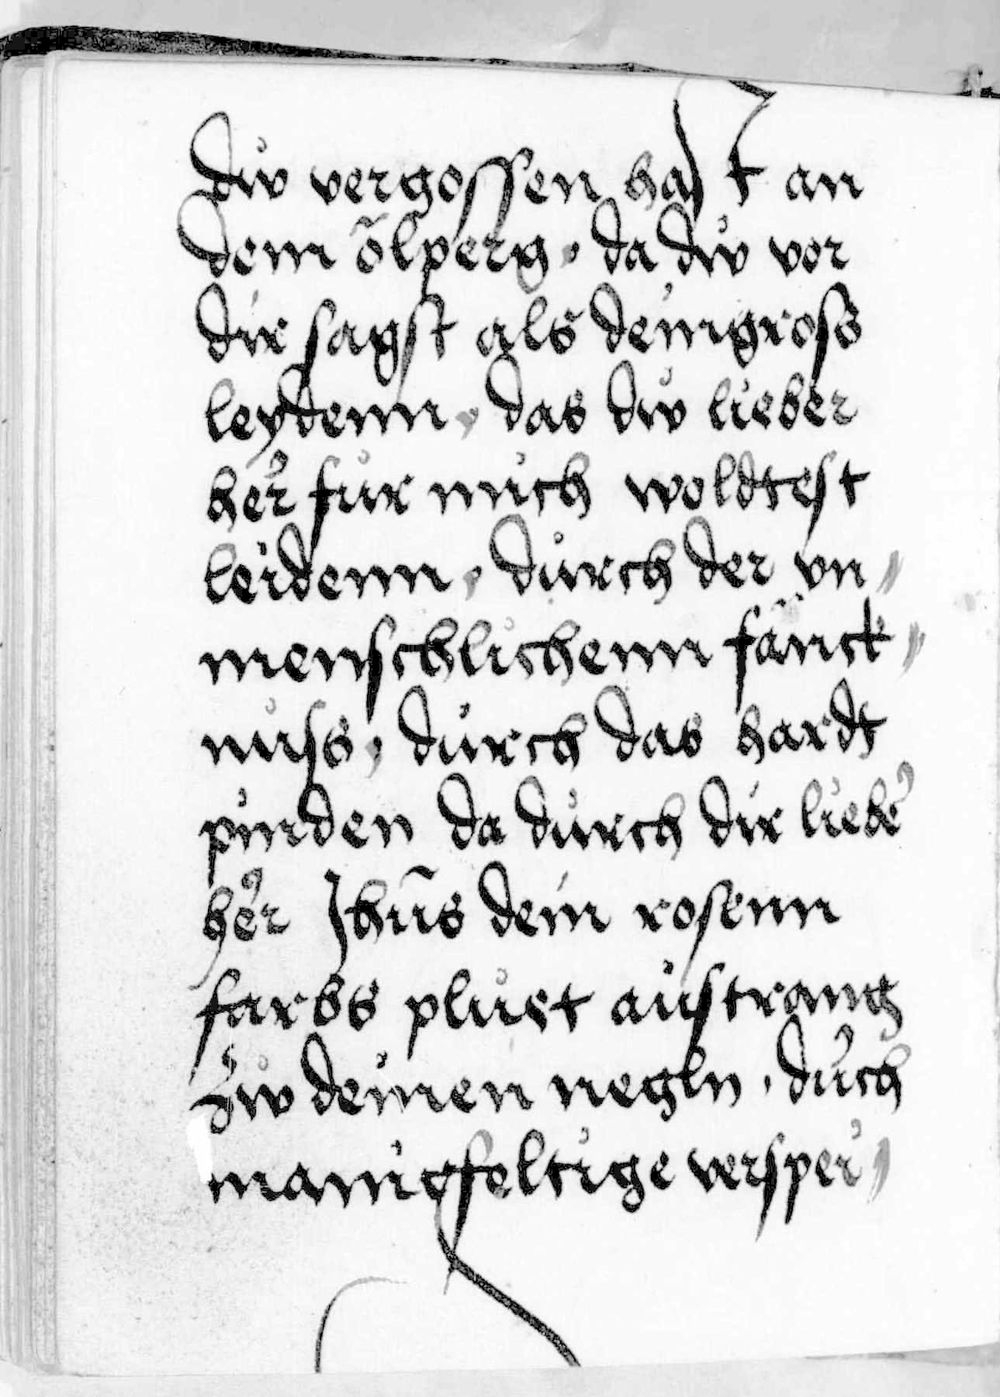 dw vergossen hast an
dem ölperg · da dw vor
dir sagst als dein gross
leydenn · das dw lieber
her fur mich woldtest
leidenn · durch der vn〃
menschlichenn fänck〃
nuss · durch das hardt
pinden da durch dir lieber
her Jhus̄ dein rosenn
farbs pluet austrang
zw deinen negln · durch
manigfeltige versper〃